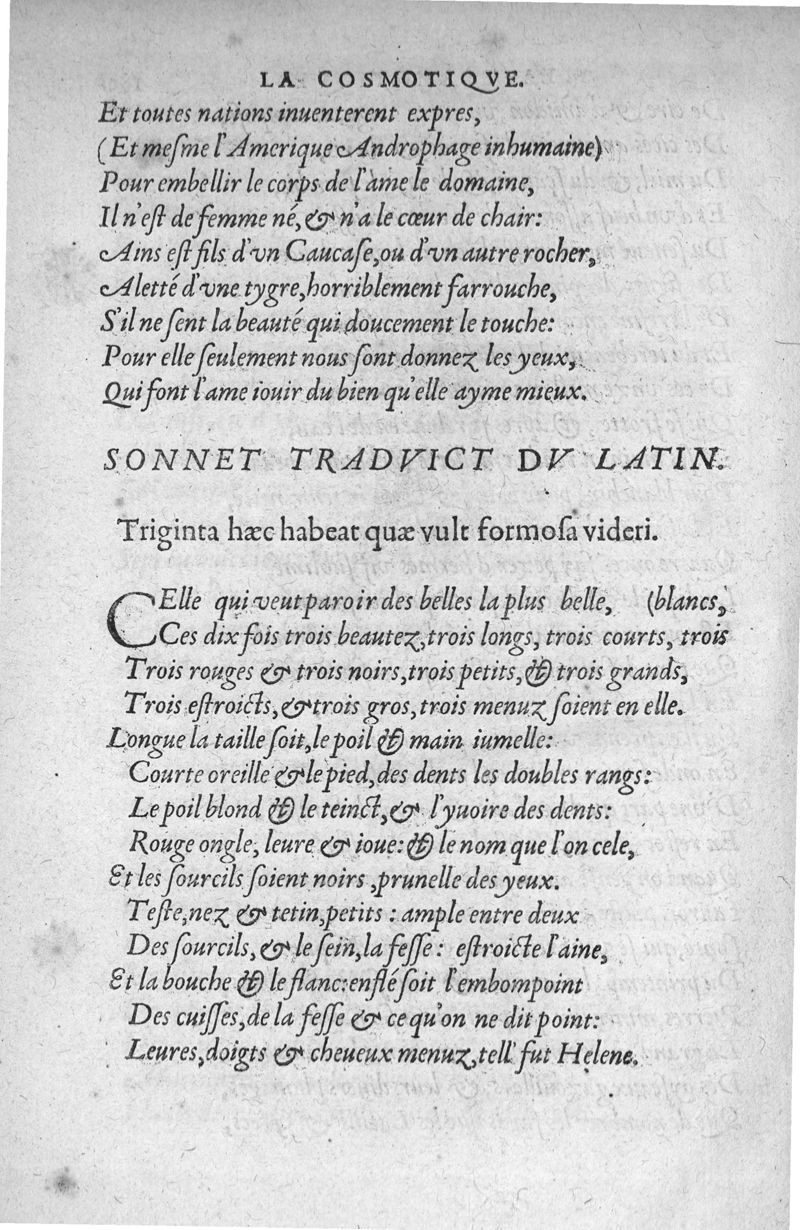 LA COSMOTIQVE.
Et toutes nations inuenterent expres,
(Et meſme l'Amerique Androphage inhumaine)
Pour embellir le corps de l'ame le domaine,
Il n'eſt de femme né, & n'a le cœur de chair:
Ains eſt fils d'vn Caucaſe, ou d'vn autre rocher,
Aletté d'vne tygre, horriblement farrouche,
S'il ne ſent la beauté qui doucement le touche:
Pour elle ſeulement nous ſont donnez les yeux,
Qui font l'ame iouir du bien qu'elle ayme mieux.
SONNET TRADVICT DV LATIN.
Triginta hæc habeat quæ vult formoſa videri.
CElle qui veut paroir des belles la plus belle, (blancs,
Ces dix fois trois beautez, trois longs, trois courts, trois
Trois rouges & trois noirs, trois petits, & trois grands,
Trois eſtroicts, & trois gros, trois menuz ſoient en elle.
Longue la taille ſoit, le poil & main iumelle:
Courte oreille & le pied, des dents les doubles rangs:
Le poil blond & le teinct, & l'yuoire des dents:
Rouge ongle, leure & ioue: & le nom que l'on cele,
Et les ſourcils ſoient noirs, prunelle des yeux.
Teſte, nez & tetin, petits: ample entre deux
Des ſourcils, & le ſein, la feſſe: eſtroicte l'aine,
Et la bouche & le flanc: enflé ſoit l'embompoint
Des cuiſſes, de la feſſe & ce qu'on ne dit point:
Leures, doigts & cheueux menuz, tell' fut Helene.